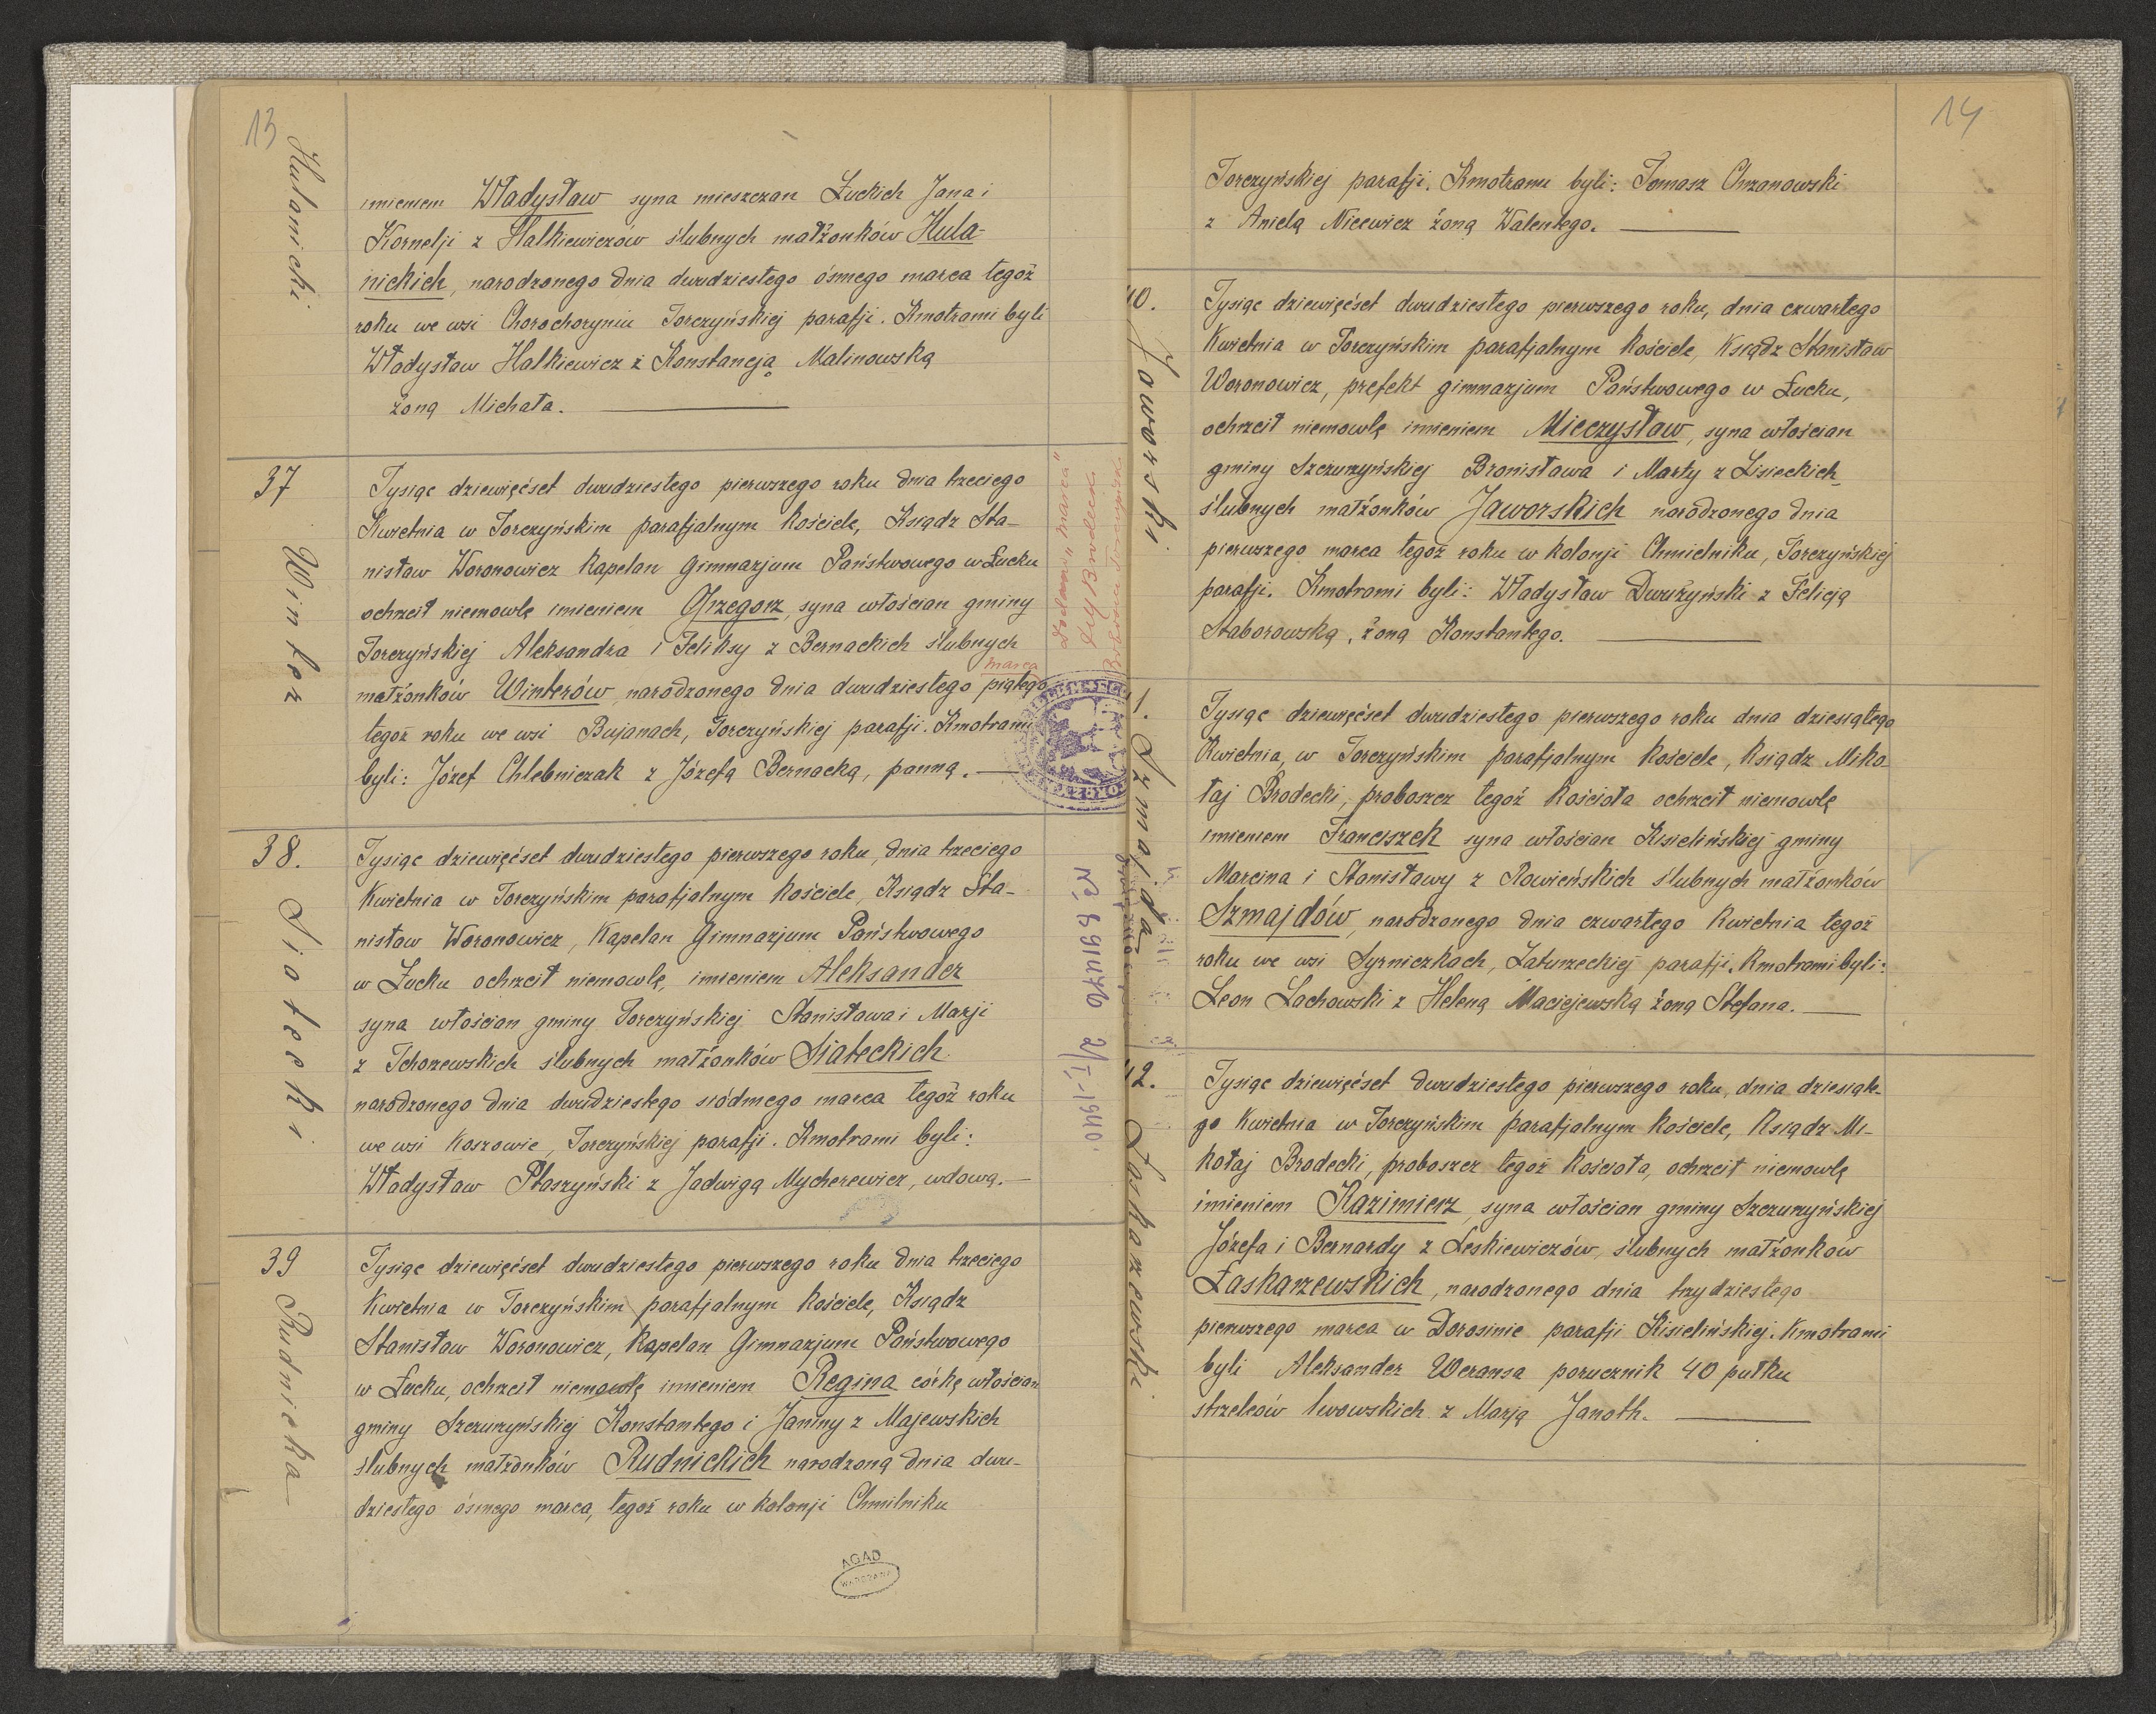 13
Hulanicki
imieniem Władysław syna mieszczan Łuckich Jana i
Kornelji z Halkiewiczów ślubnych małżonków Hula-
nickich, narodzonego dnia dwudziestego ósmego marca tegoż
roku we wsi Chorochoryniu Torczyńskiej parafji. Kmotrami byli
Władysław Halkiewicz z Konstancją Malinowską
żoną Michała.
37
Winter
Tysiąc dziewięćset dwudziestego pierwszego roku dnia trzeciego
Kwietnia w Torczyńskim parafjalnym Kościele, Ksiądz Sta-
nisław Woronowicz Kapelan Gimnazjum Państwowego w Łucku
ochrzcił niemowlę imieniem Grzegorz, syna włościan gminy
Torczyńskiej Aleksandra i Feliksy z Bernackich ślubnych
marca
małżonków Winterów, narodzonego dnia dwudziestego piątego
tegoż roku we wsi Bujanach, Torczyńskiej parafji. Kmotrami
byli: Józef Chlebniczak z Józefą Bernacką, panną.
"marca"
38.
Siatecki
Tysiąc dziewięćset dwudziestego pierwszego roku, dnia trzeciego
Kwietnia w Torczyńskim parafjalnym Kościele, Ksiądz Sta-
nisław Woronowicz, Kapelan Gimnazjum Państwowego
w Łucku ochrzcił niemowlę, imieniem Aleksander
syna włościan gminy Torczyńskiej Stanisława i Marji
z Tchorzewskich ślubnych małżonków Siateckich
narodzonego dnia dwudziestego siódmego marca tegoż roku
we wsi Koszowie, Torczyńskiej parafji. Kmotrami byli:
Władysław Ptaszyński z Jadwigą Mycherewicz, wdową.
39
Rudnicka
Tysiąc dziewięćset dwudziestego pierwszego roku dnia trzeciego
Kwietnia w Torczyńskim parafjalnym Kościele, Ksiądz
Stanisław Woronowicz, Kapelan Gimnazjum Państwowego
w Łucku, ochrzcił niemowlę imieniem Regina córkę włościan
gminy Szczurzyńskiej Konstantego i Janiny z Majewskich
ślubnych małżonków Rudnickich narodzoną dnia dwu-
dziestego ósmego marca, tegoż roku w kolonji Chmilniku
AGAD
WARSZAWA
14
Torczyńskiej parafji. Kmotrami byli: Tomasz Chrzanowski
z Anielą Nicewicz żoną Walentego.
40.
Jaworski
Tysiąc dziewięćset dwudziestego pierwszego roku, dnia czwartego
Kwietnia w Torczyńskim parafjalnym Kościele, Ksiądz Stanisław
Woronowicz, prefekt gimnazjum Państwowego w Łucku,
ochrzcił niemowlę imieniem Mieczysław, syna włościan
gminy Szczurzyńskiej Bronisława i Marty z Lisieckich
ślubnych małżonków Jaworskich narodzonego dnia
pierwszego marca tegoż roku w kolonji Chmielniku, Torczyńskiej
parafji. Kmotrami byli: Władysław Dwurzyński z Felicją
Staborowską, żoną Konstantego.
1.
Szmajda
Tysiąc dziewięćset dwudziestego pierwszego roku dnia dziesiątego
Kwietnia, w Torczyńskim parafjalnym Kościele, Ksiądz Miko-
łaj Brodecki, proboszcz tegoż Kościoła ochrzcił niemowlę
imieniem Franciszek syna włościan Kisielińskiej gminy
Marcina i Stanisławy z Rowieńskich ślubnych małżonków
Szmajdów, narodzonego dnia czwartego Kwietnia tegoż
roku we wsi Syrniczkach, Zaturzeckiej parafji. Kmotrami byli:
Leon Lachowski z Heleną Maciejewską żoną Stefana.
42.
Łaskarzewski
Tysiąc dziewięćset dwudziestego pierwszego roku, dnia dziesiąte-
go Kwietnia w Torczyńskim parafjalnym Kościele, Ksiądz Mi-
kołaj Brodecki, proboszcz tegoż Kościoła, ochrzcił niemowlę
imieniem Kazimierz, syna włościan gminy Szczurzyńskiej
Józefa i Bernardy z Leskiewiczów, ślubnych małżonków
Łaskarzewskich, narodzonego dnia trzydziestego
pierwszego marca w Dorosinie parafji Kisielińskiej. Kmotrami
byli Aleksander Weransa porucznik 40 pułku
strzelców lwowskich z Marją Janoth.